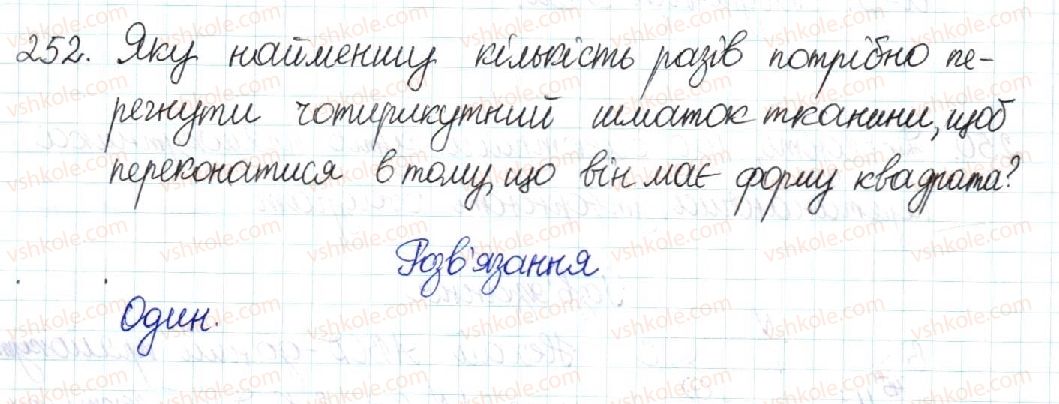 252. Яку найменшу кількість разів потрібно пе-
регнути чотирикутний шматок тканини, щоб
переконатися в тому, що він має форму квадрата?
Розв'язання
Один.